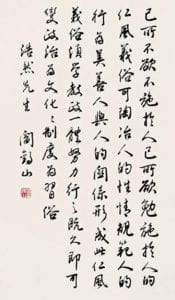 己所不欲不施於人己所欲勉施於人的
仁風義俗可陶冶人的性情規範人的
行為美善人與人的關係形成此仁風
義俗須學教政一體努力行之既久即可
變政治為文化制度為習俗
浩然先生 閻錫山